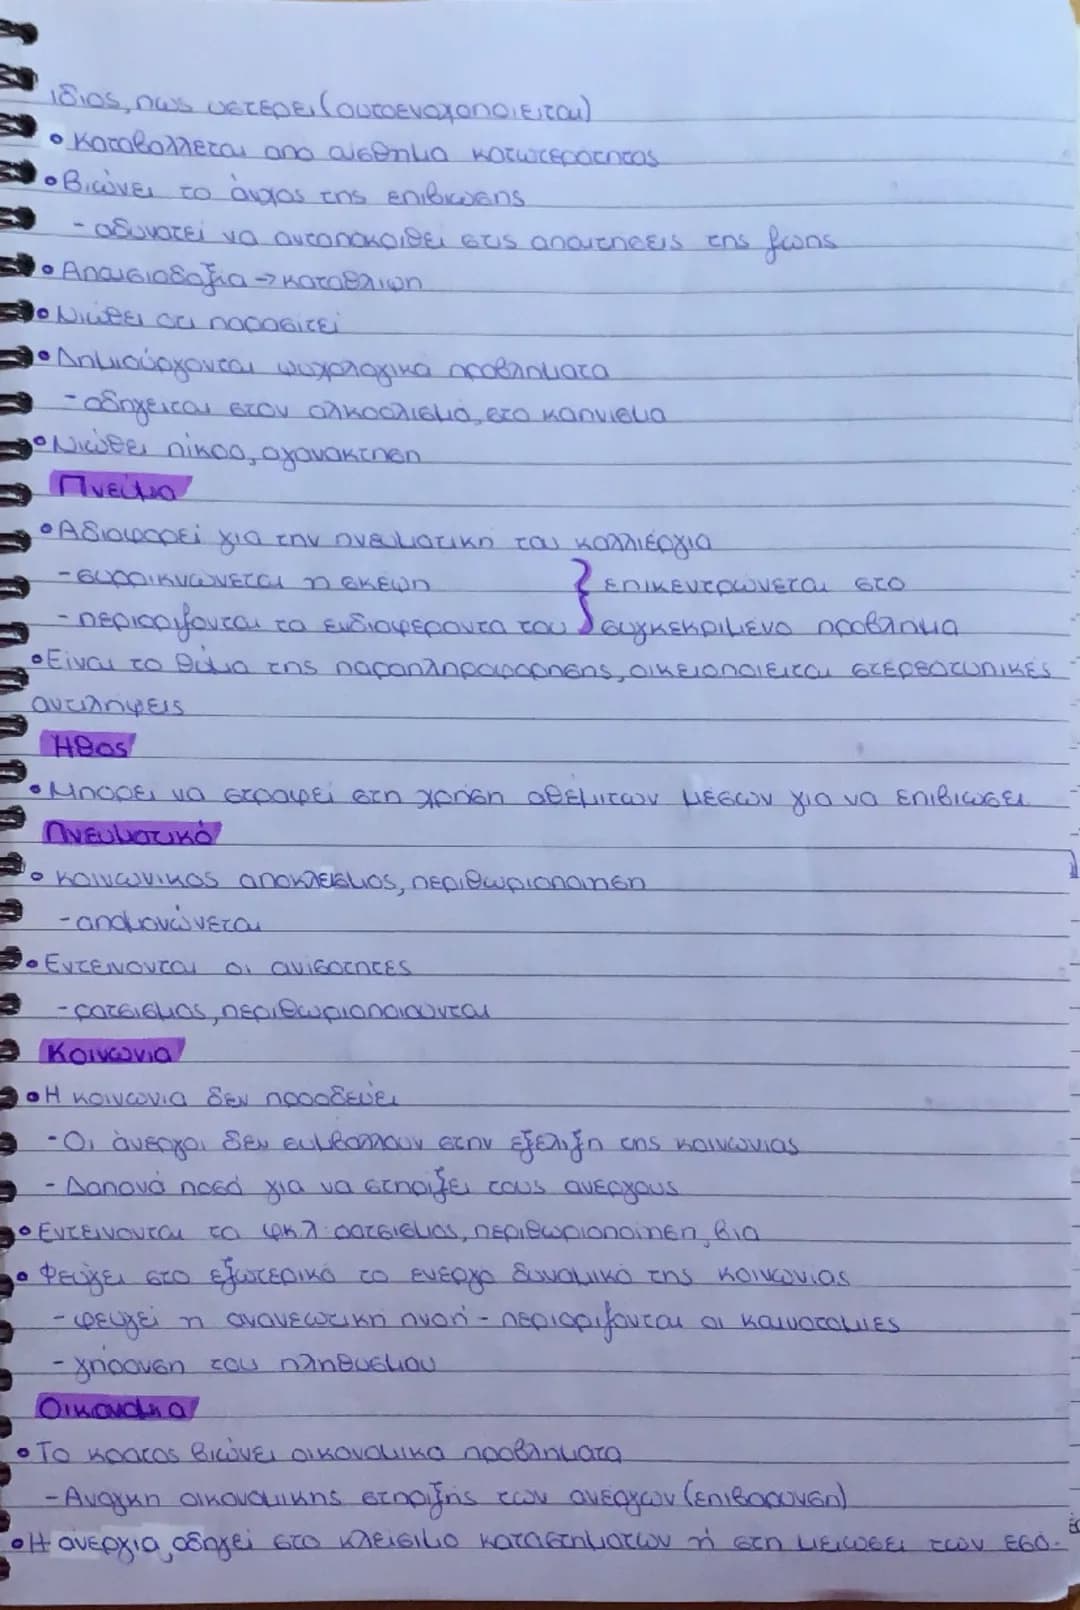 ιδιος, πως υστερει (αυτοενοχοποιειται)
• Καταβαλλεται απο αισθημα κατωτεροτητας
• Βιώνει το άγχος της επιβιωσης
- αδυνατει να ανταποκριθει στις απαιτησεις της ζωης
• Απαισιοδοξια → καταθλιψη
• Νιωθει οτι παρασιτει
• Δημιούργουνται ψυχολογικά προβληματα
- οδηγειται στον αλκοολισμό, στο καπνισμα
• Νιώθει πικρα, αγανακτηση
Πνεύμα
• Αδιαφορεί για την πνευματικη του καλλιέργια
- συρρικνώνεται η σκεψη } επικεντρώνεται στο
- περιοριζονται τα ενδιαφεροντα του } συγκεκριμενο προβλημα
• Είναι το θύμα της παραπληροφορησης, οικειοποιειται στερεοτυπικές
αντιληψεις
Ηθος
• Μπορει να στραφεί στη χρήση αθέμιτων μέσων για να επιβιωσει
Πνευματικό
• κοινωνικος αποκλεισμος, περιθωριοποιηση
- απομονώνεται
• Εντεινονται οι ανισοτητες
- ρατσισμος, περιθωριοποιουνται
Κοινωνια
• Η κοινωνια δεν προοδευει
- Οι άνεργοι δεν συμβαλλουν στην εξελιξη της κοινωνιας
- Δαπανά ποσά για να στηριξει τους ανεργους
• Εντεινονται τα φκλ: ρατσισμος, περιθωριοποιηση, βια
• Φεύγει στο εξωτερικό το ενεργο δυναμικό της κοινωνιας
- φευγει η ανανεωτικη πνοή - περιοριζονται οι καινοτομιες
- γηρανση του πληθυσμου
Οικονομια
• Το κρατος βιώνει οικονομικα προβληματα
- Αναγκη οικονομικης στηριξης των ανεργων (επιβαρυνση)
• Η άνεργια, οδηγεί στο κλείσιμο καταστηματων ή στη μειωσει των εσό-